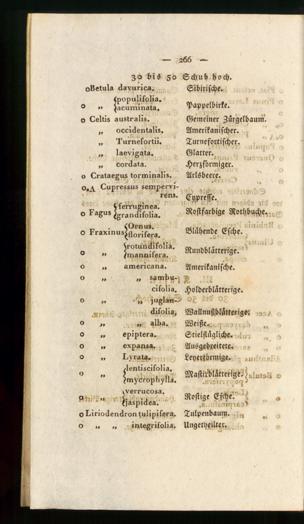 — 266 —
30 bis 50 Schuh hoch.
o Betula davurica. Sibirische.
o „ {populifolia.
acuminata. Pappelbirke.
o Celtis australis. Gemeiner Zürgelbaum.
„ occidentalis. Amerikanischer.
„ Turnefortii. Turnefortischer.
„ laevigata. Glatter.
„ cordata. Herzförmiger.
o Crataegus torminalis. Arlsbeere.
o,Δ Cupressus sempervi-
rens. Cypresse.
o Fagus {ferruginea.
grandifolia. Rostfarbige Rothbuche.
o Fraxinus {Ornus.
florifera. Blühende Esche.
o „ {rotundifolia.
mannifera. Rundblätterige.
o „ americana. Amerikanische.
o „ „ sambu-
cifolia. Holderblätterige.
o „ „ juglan-
difolia, Wallnußblätterige.
o „ „ alba. Weiße.
o „ epiptera. Stielflüglichte.
o „ expansa. Ausgebreitete.
o „ Lyrata. Leyerförmige.
o „ {lentiscifolia.
mycrophylla. Mastixblätterige.
o „ {verrucosa.
jaspidea. Rostige Esche.
o Liriodendron tulipifera. Tulpenbaum.
o „ „ integrifolia. Ungetheilter.